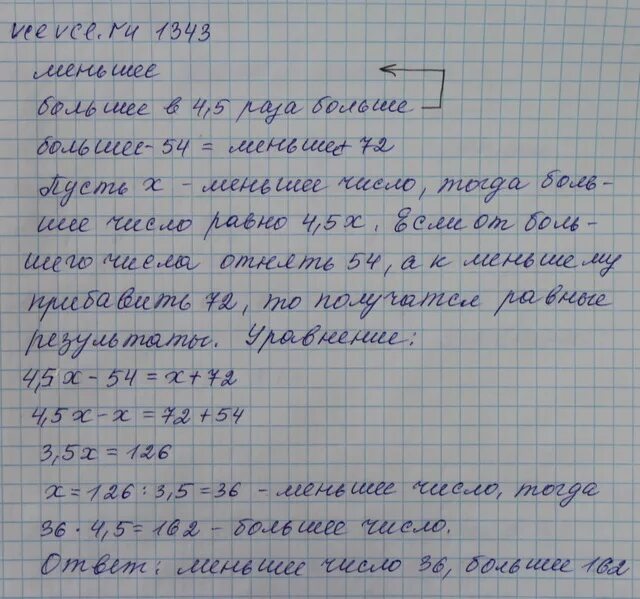 vcevce.ru 1343
меньшее
большее в 4,5 раза больше
большее - 54 = меньшее + 72
Пусть x - меньшее число, тогда боль-
шее число равно 4,5x. Если от боль-
шего числа отнять 54, а к меньшему
прибавить 72, то получатся равные
результаты. Уравнение:
4,5x - 54 = x + 72
4,5x - x = 72 + 54
3,5x = 126
x = 126 : 3,5 = 36 - меньшее число, тогда
36 · 4,5 = 162 - большее число.
Ответ: меньшее число 36, большее 162